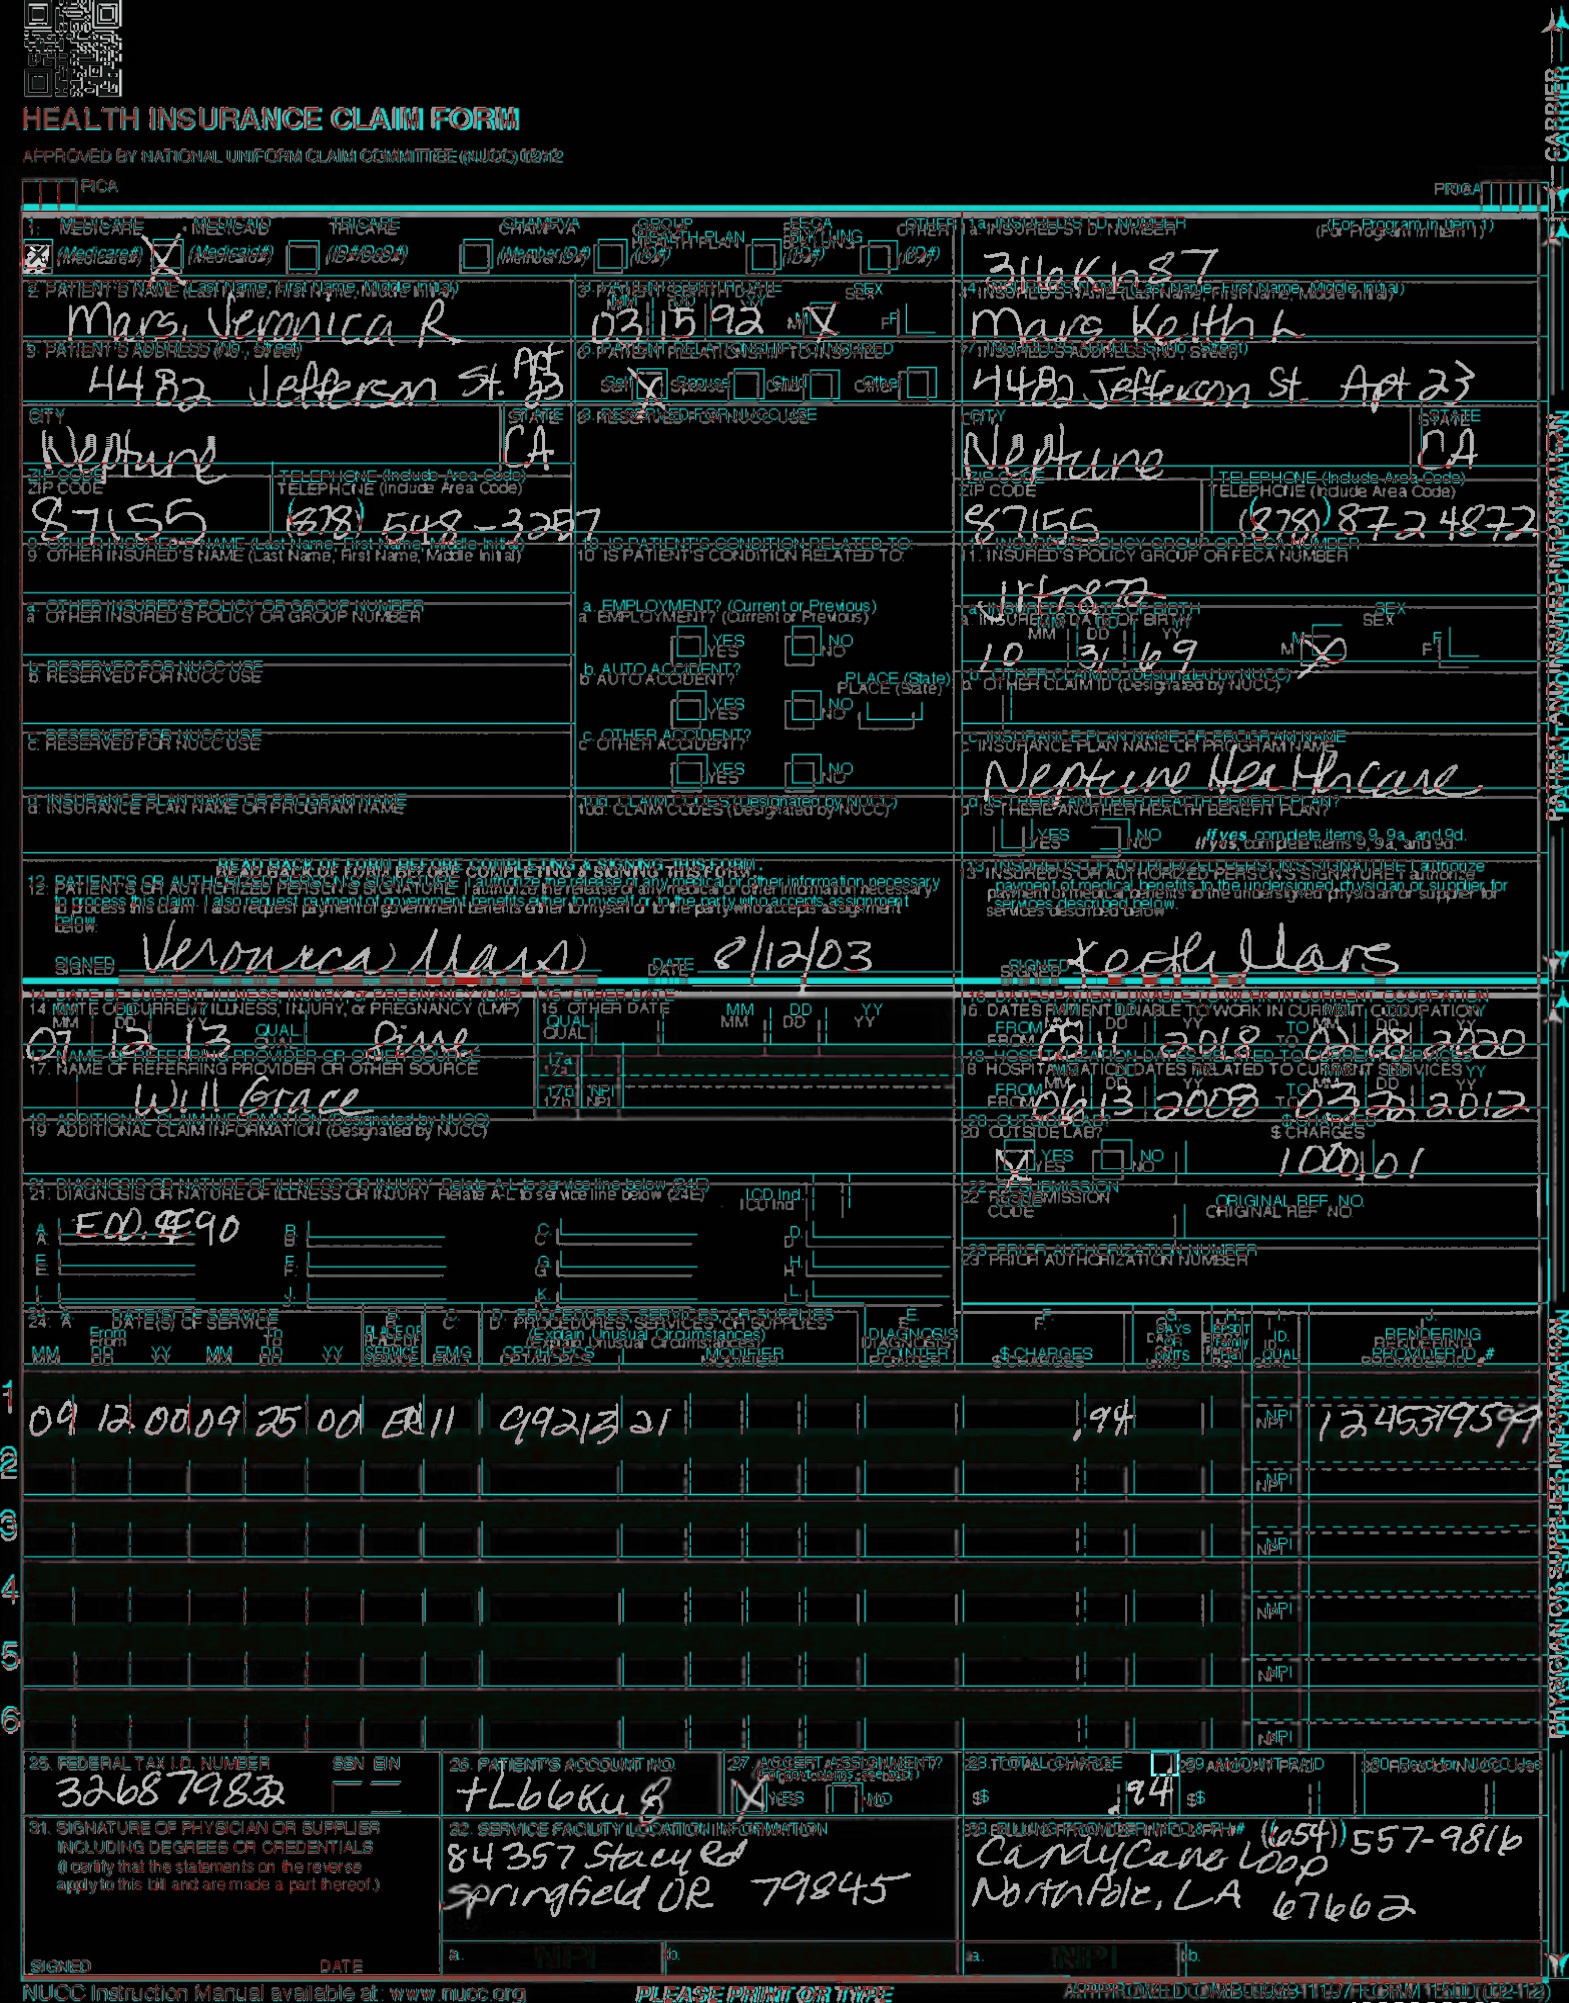 HEALTH INSURANCE CLAIM FORM
APPROVED BY NATIONAL UNIFORM CLAIM COMMITTEE (NUCC) 02/12
PICA
PICA
CARRIER
1. MEDICARE MEDICAID TRICARE CHAMPVA GROUP HEALTH PLAN FECA BLK LUNG OTHER
(Medicare#) (Medicaid#) (ID#/DoD#) (Member ID#) (ID#) (ID#) (ID#)
1a. INSURED'S I.D. NUMBER (For Program in Item 1)
316Kh87
2. PATIENT'S NAME (Last Name, First Name, Middle Initial)
Mars, Veronica R
3. PATIENT'S BIRTH DATE SEX
MM DD YY
03 15 92 M F
4. INSURED'S NAME (Last Name, First Name, Middle Initial)
Mars, Keith L
5. PATIENT'S ADDRESS (No., Street)
4482 Jefferson St. Apt 23
6. PATIENT RELATIONSHIP TO INSURED
Self Spouse Child Other
7. INSURED'S ADDRESS (No., Street)
4482 Jefferson St. Apt 23
CITY STATE
Neptune CA
8. RESERVED FOR NUCC USE
CITY STATE
Neptune CA
ZIP CODE TELEPHONE (Include Area Code)
87155 (878) 548-3257
ZIP CODE TELEPHONE (Include Area Code)
87155 (878) 872 4872
9. OTHER INSURED'S NAME (Last Name, First Name, Middle Initial)
10. IS PATIENT'S CONDITION RELATED TO:
11. INSURED'S POLICY GROUP OR FECA NUMBER
a. OTHER INSURED'S POLICY OR GROUP NUMBER
a. EMPLOYMENT? (Current or Previous)
YES NO
a. INSURED'S DATE OF BIRTH SEX
MM DD YY
10 31 69 M F
b. RESERVED FOR NUCC USE
b. AUTO ACCIDENT? PLACE (State)
YES NO
b. OTHER CLAIM ID (Designated by NUCC)
c. RESERVED FOR NUCC USE
c. OTHER ACCIDENT?
YES NO
c. INSURANCE PLAN NAME OR PROGRAM NAME
Neptune Healthcare
d. INSURANCE PLAN NAME OR PROGRAM NAME
10d. CLAIM CODES (Designated by NUCC)
d. IS THERE ANOTHER HEALTH BENEFIT PLAN?
YES NO If yes, complete items 9, 9a, and 9d.
READ BACK OF FORM BEFORE COMPLETING & SIGNING THIS FORM.
12. PATIENT'S OR AUTHORIZED PERSON'S SIGNATURE I authorize the release of any medical or other information necessary
to process this claim. I also request payment of government benefits either to myself or to the party who accepts assignment
below.
SIGNED Veronica Mars DATE 8/12/03
13. INSURED'S OR AUTHORIZED PERSON'S SIGNATURE I authorize
payment of medical benefits to the undersigned physician or supplier for
services described below.
SIGNED Keith Mars
PATIENT AND INSURED INFORMATION
14. DATE OF CURRENT ILLNESS, INJURY, or PREGNANCY (LMP)
MM DD YY
07 12 13 QUAL.
15. OTHER DATE
QUAL. MM DD YY
16. DATES PATIENT UNABLE TO WORK IN CURRENT OCCUPATION
MM DD YY MM DD YY
FROM 05 11 2018 TO 02 08 2020
17. NAME OF REFERRING PROVIDER OR OTHER SOURCE
Will Grace
17a.
17b. NPI
18. HOSPITALIZATION DATES RELATED TO CURRENT SERVICES
MM DD YY MM DD YY
FROM 06 13 2008 TO 03 22 2012
19. ADDITIONAL CLAIM INFORMATION (Designated by NUCC)
20. OUTSIDE LAB? $ CHARGES
YES NO 1000 01
21. DIAGNOSIS OR NATURE OF ILLNESS OR INJURY Relate A-L to service line below (24E) ICD Ind.
A. B. C. D.
E. F. G. H.
I. J. K. L.
22. RESUBMISSION CODE ORIGINAL REF. NO.
23. PRIOR AUTHORIZATION NUMBER
24. A. DATE(S) OF SERVICE B. C. D. PROCEDURES, SERVICES, OR SUPPLIES E. F. G. H. I. J.
From To PLACE OF (Explain Unusual Circumstances) DIAGNOSIS DAYS EPSDT ID. RENDERING
MM DD YY MM DD YY SERVICE EMG CPT/HCPCS MODIFIER POINTER $ CHARGES QUAL. PROVIDER ID. #
1 09 12 00 09 25 00 ER 11 99213 21 .94 NPI 1245379599
2 NPI
3 NPI
4 NPI
5 NPI
6 NPI
PHYSICIAN OR SUPPLIER INFORMATION
25. FEDERAL TAX I.D. NUMBER SSN EIN
326879832
26. PATIENT'S ACCOUNT NO.
+L66Ku8
27. ACCEPT ASSIGNMENT?
YES NO
28. TOTAL CHARGE
$ .94
29. AMOUNT PAID
$
30. Rsvd for NUCC Use
31. SIGNATURE OF PHYSICIAN OR SUPPLIER
INCLUDING DEGREES OR CREDENTIALS
(I certify that the statements on the reverse
apply to this bill and are made a part thereof.)
SIGNED DATE
32. SERVICE FACILITY LOCATION INFORMATION
84357 Stacy Rd
Springfield OR 79845
a. NPI b.
33. BILLING PROVIDER INFO & PH# (654) 557-9816
Candy Cane Loop
North Pole, LA 67662
a. NPI b.
NUCC Instruction Manual available at: www.nucc.org
PLEASE PRINT OR TYPE
APPROVED OMB-0938-1197 FORM 1500 (02-12)